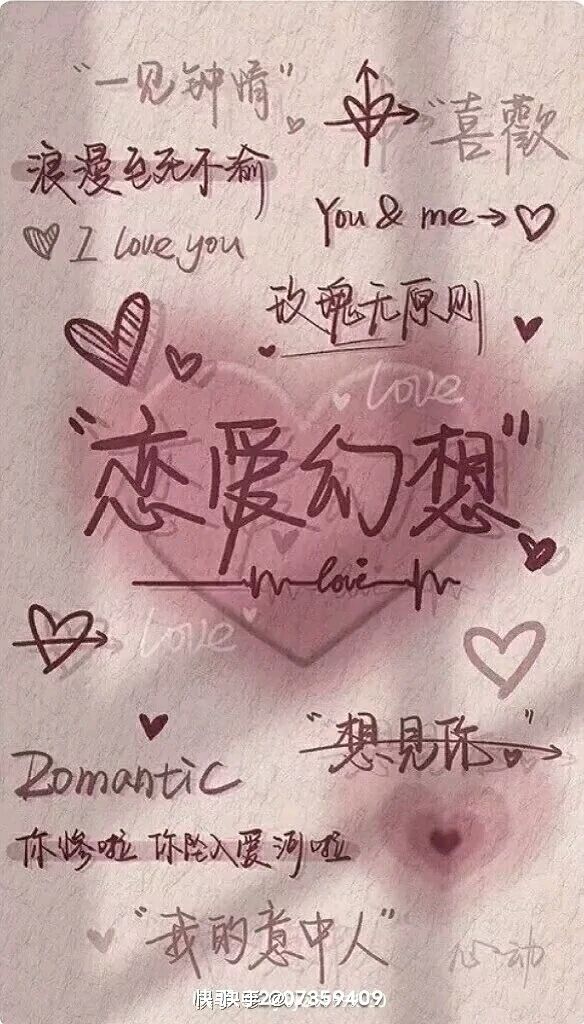 "一见钟情"
"喜歡
浪漫至死不渝
You & me
I love you
玫瑰无原则
love
"恋爱幻想"
love
love
"想见你"
Romantic
你惨啦 你坠入爱河啦
"我的意中人"
心动